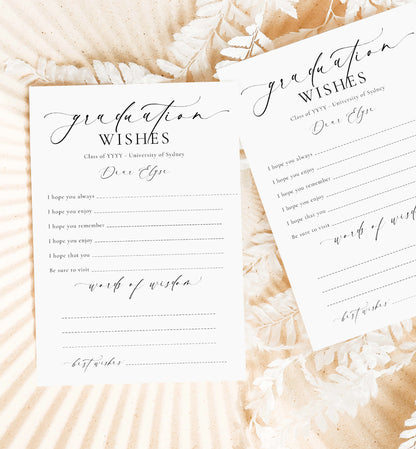 graduation
WISHES
Class of YYYY - University of Sydney
Dear Elyse
I hope you always
I hope you enjoy
I hope you remember
I hope you enjoy
I hope that you
Be sure to visit
words of wisdom
best wishes
graduation
WISHES
Class of YYYY - University of Sydney
Dear Elyse
I hope you always
I hope you enjoy
I hope you remember
I hope you enjoy
I hope that you
Be sure to visit
words of
best wishes